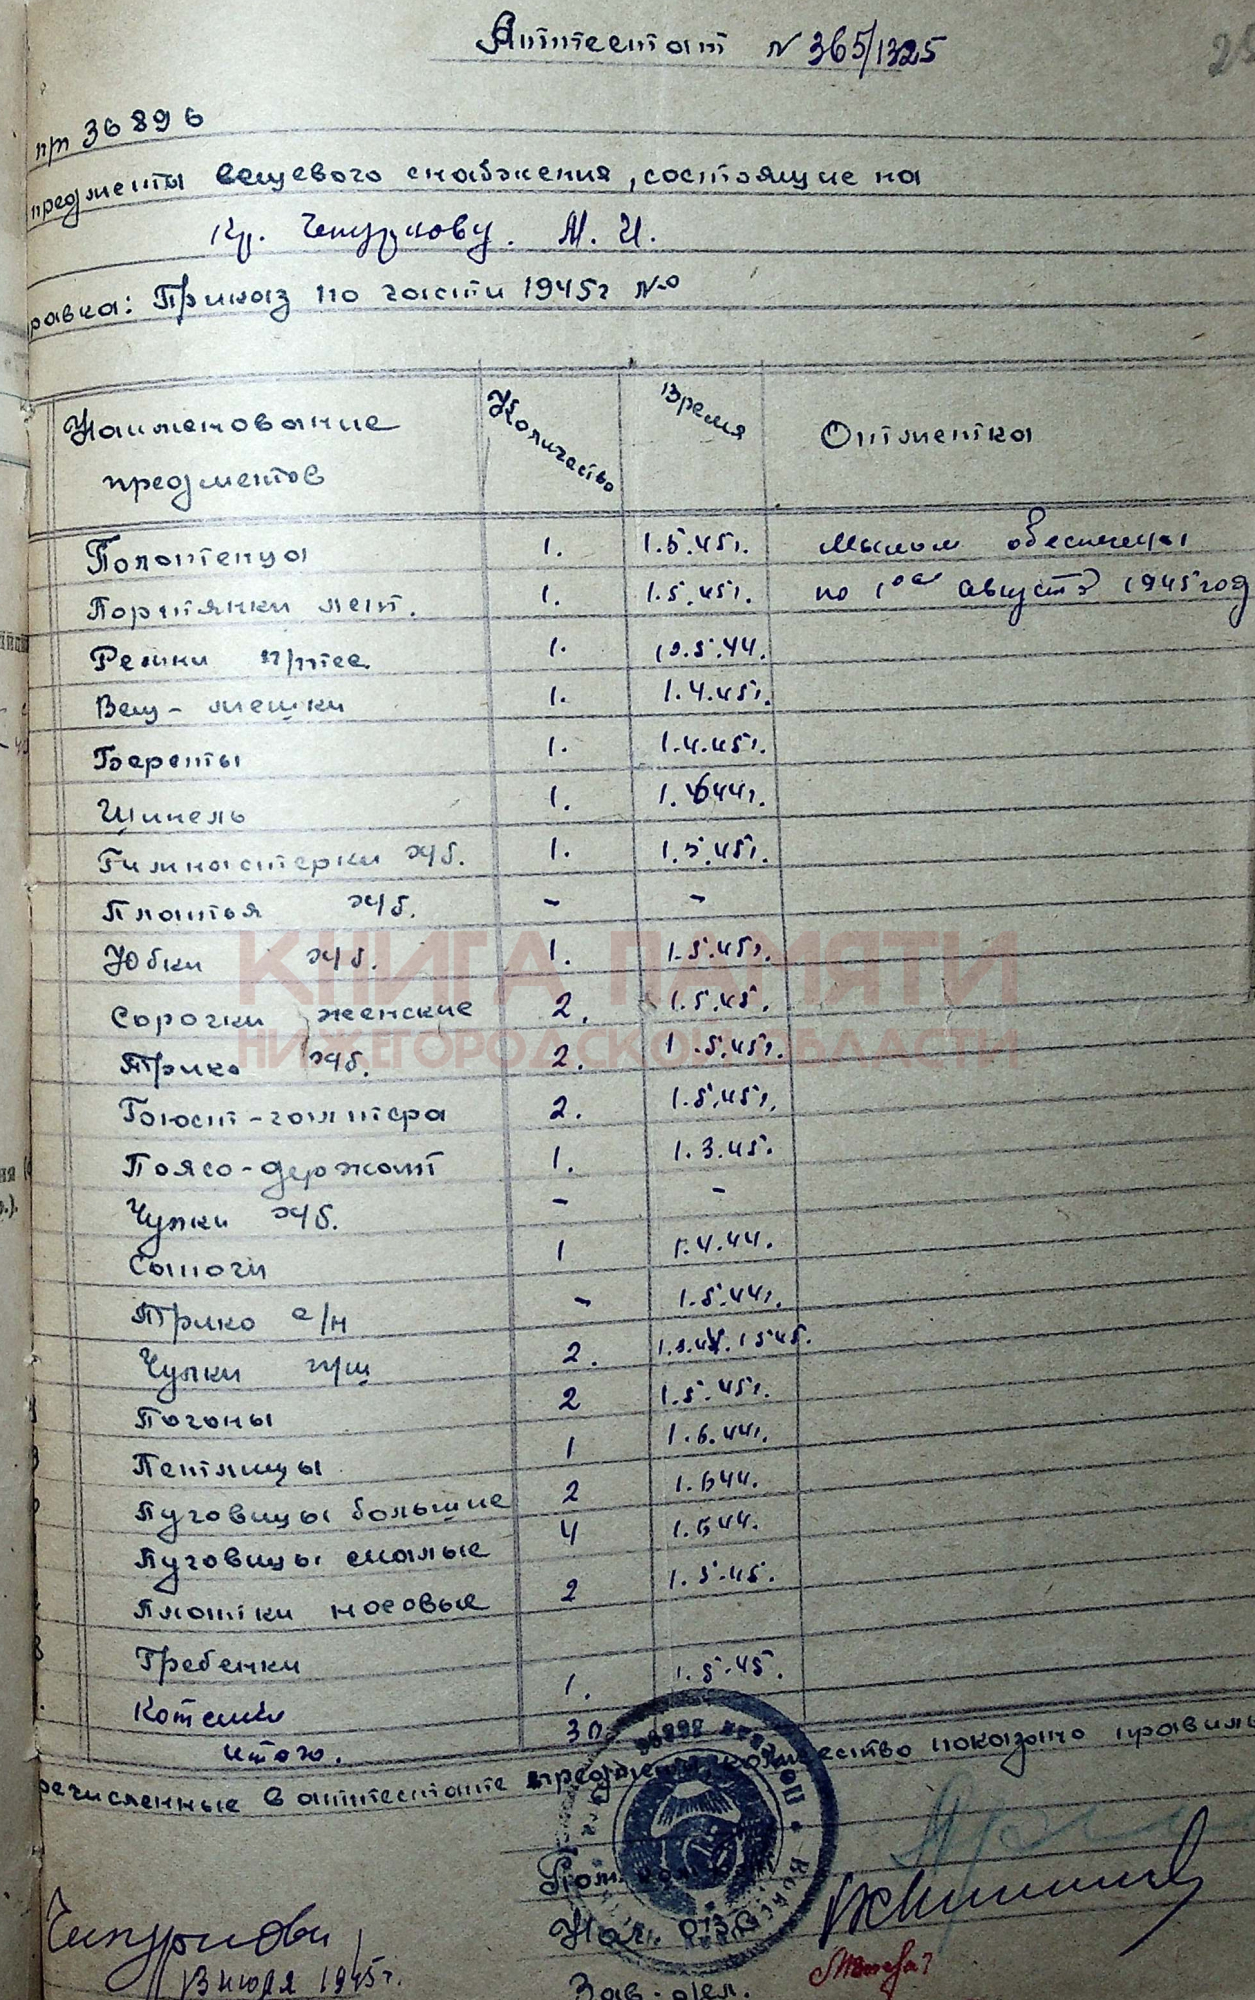 Аттестат N 365/1325
25
пп 36896
предметы вещевого снабжения, состоящие на
Кр. Чепурнову. М. И.
равка: Приказ по части 1945г №
Наименование предметов Количество Время Отметка
Полотенца 1. 1.5.45г. мылом обеспечены
Портянки лет. 1. 1.5.45г. по 1ое август 1945 год
Ремни 1. .5.44.
Вещ-мешки 1. 1.4.45г.
Береты 1. 1.4.45г.
Шинель 1. 1. 44г.
Гимнастерки х/б. 1. 1.5.45г.
Платья х/б. - -
Юбки х/б. 1. 1.5.45г.
Сорочки женские 2. 1.5.45.
Трико х/б. 2. 1.5.45г.
Бюст-галтера 2. 1.5.45г.
Поясо-держат 1. 1.3.45.
Чулки х/б. - -
Сапоги 1 1.4.44.
Трико с/н - 1.5.44г.
Чулки п/ш 2. 1.5.45.
Погоны 2 1.5.45г.
Петлицы 1 1.6.44г.
Пуговицы большие 2 1.644.
Пуговицы малые 4 1.644.
Платки носовые 2 1.5.45.
Гребенки
Котелки 1. 1.5.45.
итого. 30
речисленные в аттестате предметы, количество показано правиль
Пом.
Нач. ОВС
Зав. дел.
Чепурнова
13 июля 1945г.
36896
КНИГА ПАМЯТИ
НИЖЕГОРОДСКОЙ ОБЛАСТИ